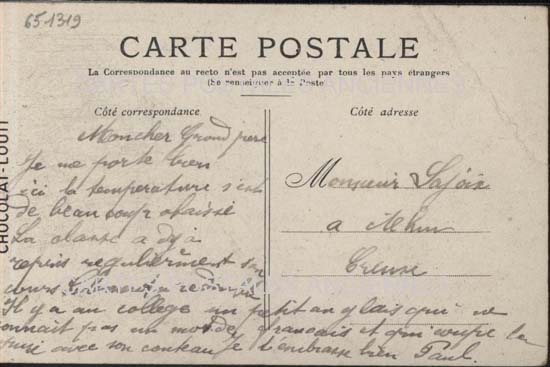 651319
CARTE POSTALE
La Correspondance au recto n'est pas acceptée par tous les pays étrangers
(Se renseigner à la Poste)
CARTES POSTALES ANCIENNES
Côté correspondance
Côté adresse
CHOCOLAT-LOUIT
Mon cher Grand père
Je me porte bien
ici la température s'est
de beaucoup abaissé
La classe a déjà
repris regulièrement son
cours
Il y a au collège un petit anglais qui ne
connait pas un mot de français et qui coupe la
avec son couteau Je t'embrasse bien Paul.
Monsieur
a Ahun
Creuse